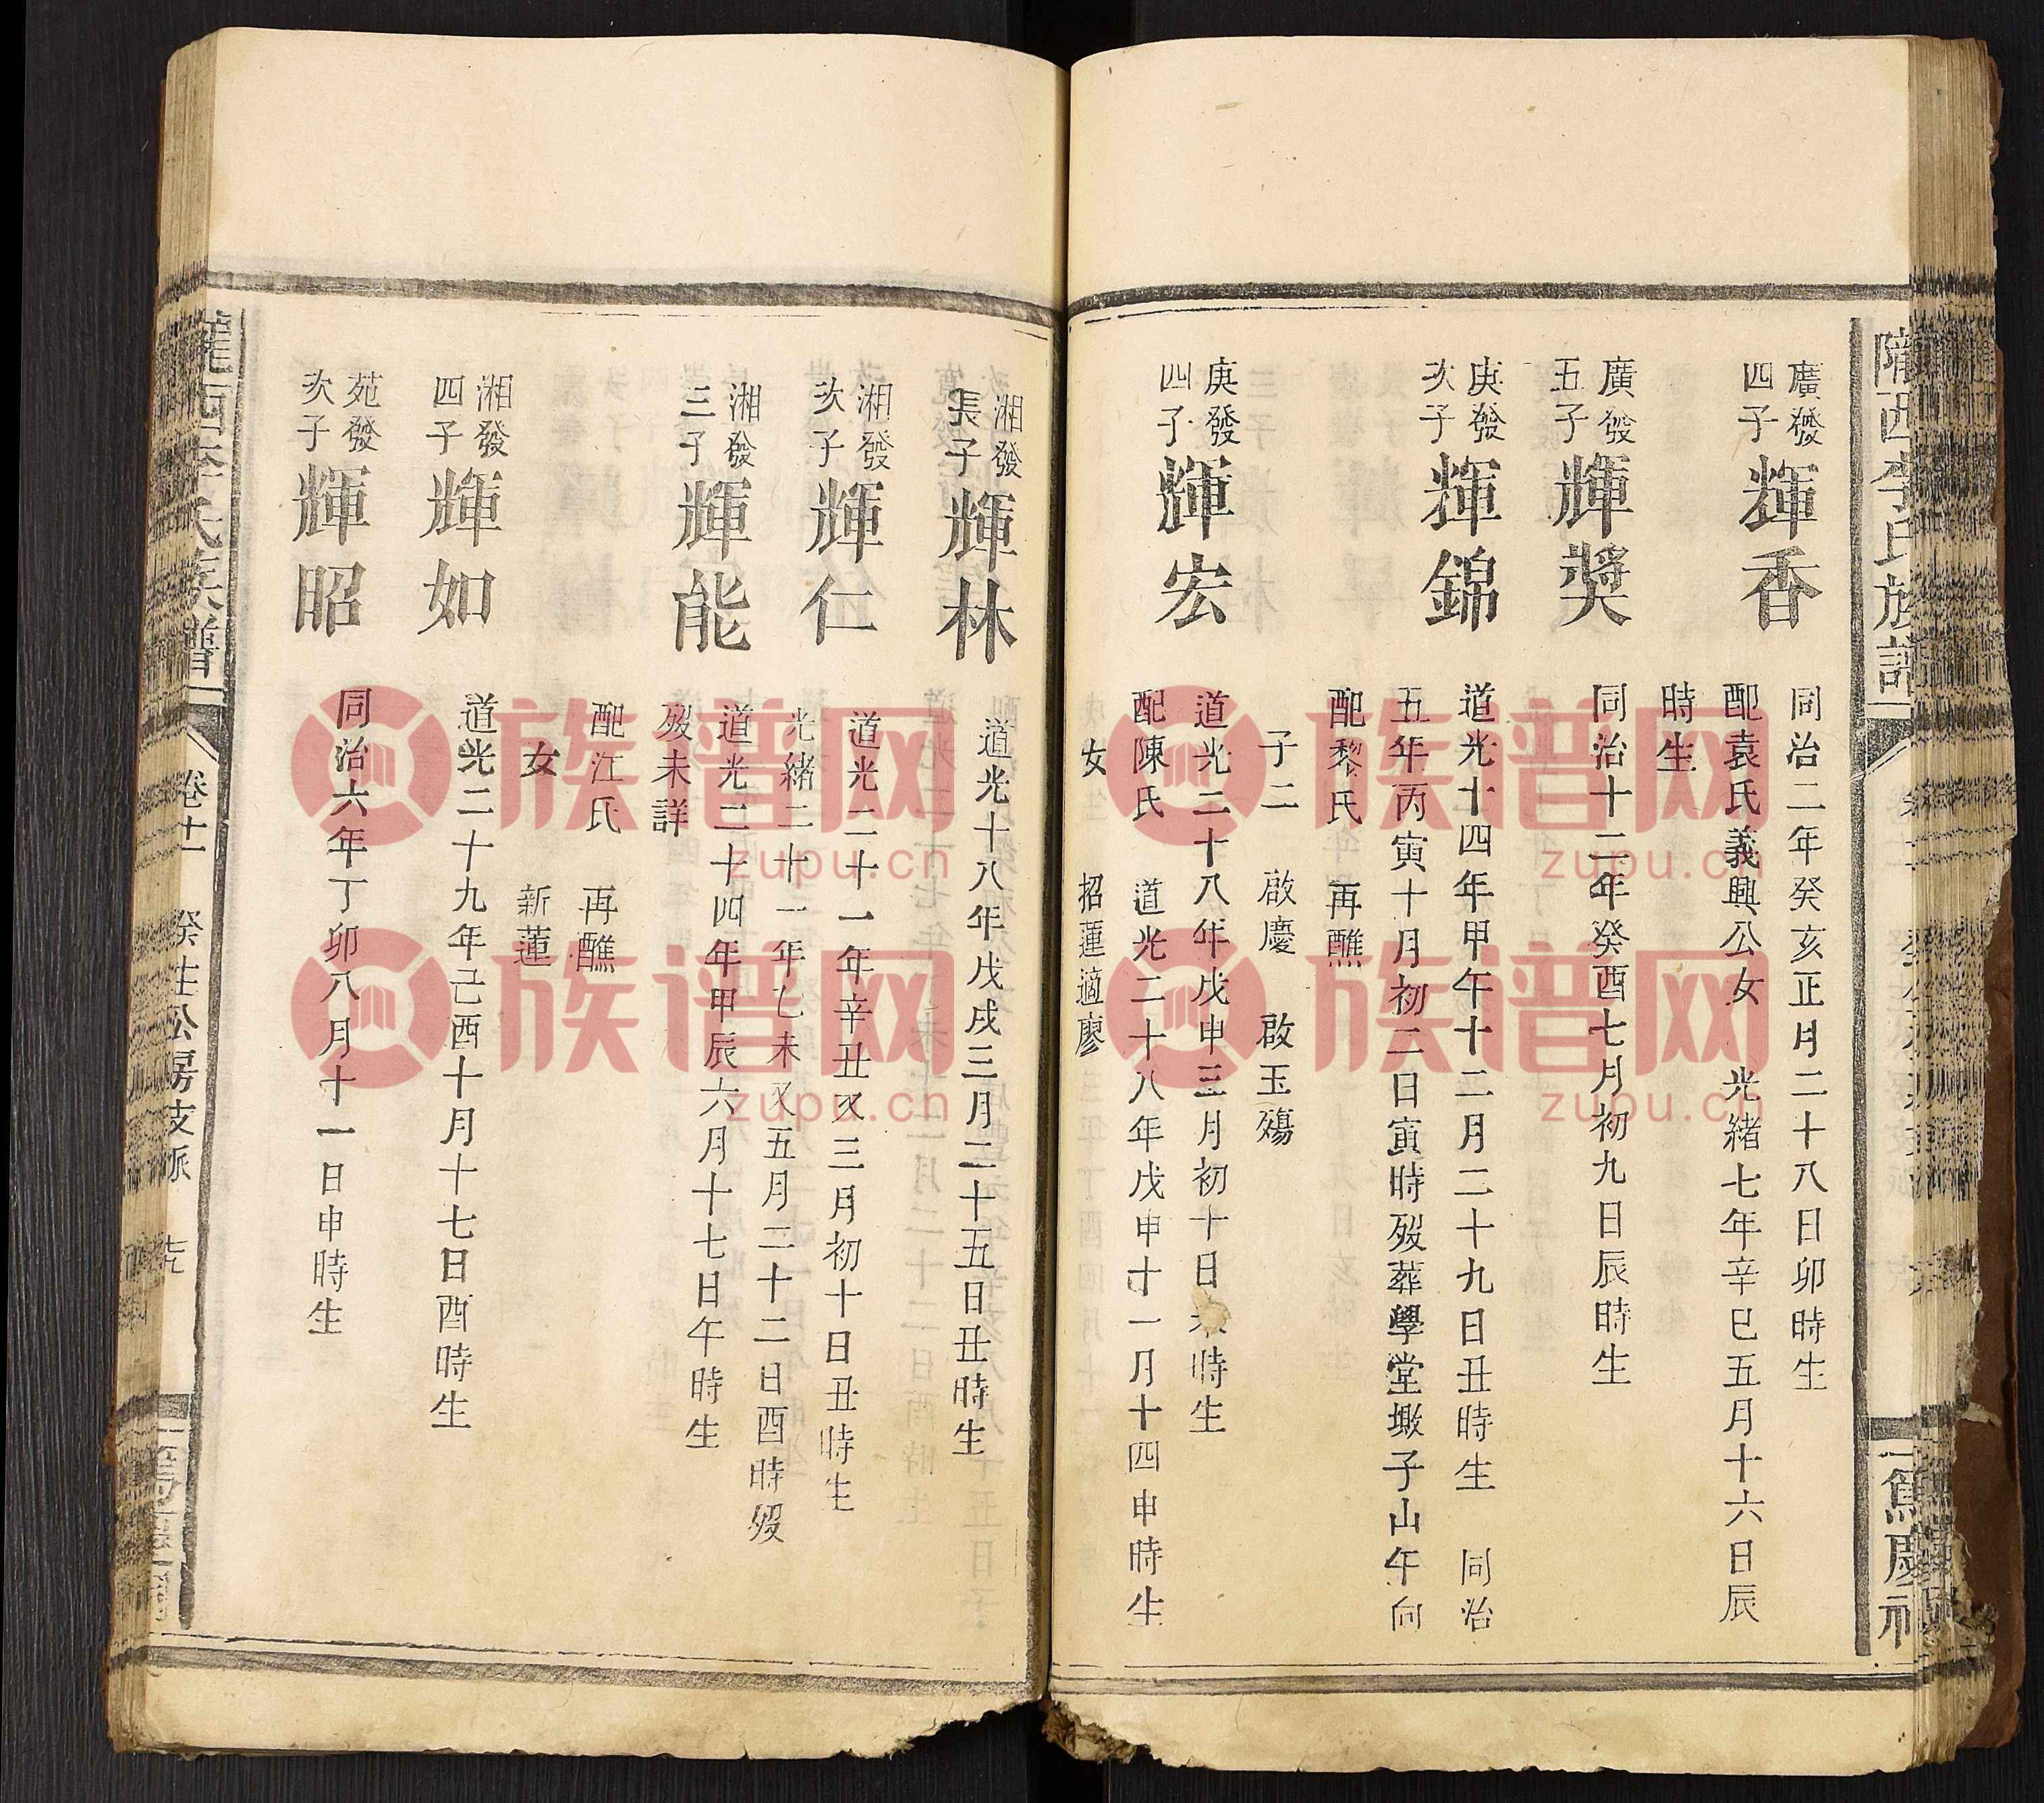 隴西李氏族譜
廣發
四子
輝香
同治二年癸亥正月二十八日卯時生
配袁氏義興公女 光緒七年辛巳五月十六日辰
時生
廣發
五子
輝獎
同治十二年癸酉七月初九日辰時生
庚發
次子
輝錦
道光十四年甲午十二月二十九日丑時生 同治
五年丙寅十月初二日寅時歿葬學堂墩子山午向
配黎氏 再醮
子二 啟慶 啟玉殤
庚發
四子
輝宏
道光二十八年戊申三月初十日未時生
配陳氏 道光二十八年戊申十一月十四申時生
女 招蓮適廖
湘發
長子
輝林
道光十八年戊戌三月二十五日丑時生
湘發
次子
輝仁
道光二十一年辛丑又三月初十日丑時生
光緒二十一年乙未又五月二十二日酉時歿
湘發
三子
輝能
道光二十四年甲辰六月十七日午時生
歿未詳
配江氏 再醮
女 新蓮
湘發
四子
輝如
道光二十九年己酉十月十七日酉時生
苑發
次子
輝昭
同治六年丁卯八月十一日申時生
隴西李氏族譜
卷十一
公房支派
族谱网
zupu.cn
族谱网
zupu.cn
族谱网
zupu.cn
族谱网
zupu.cn